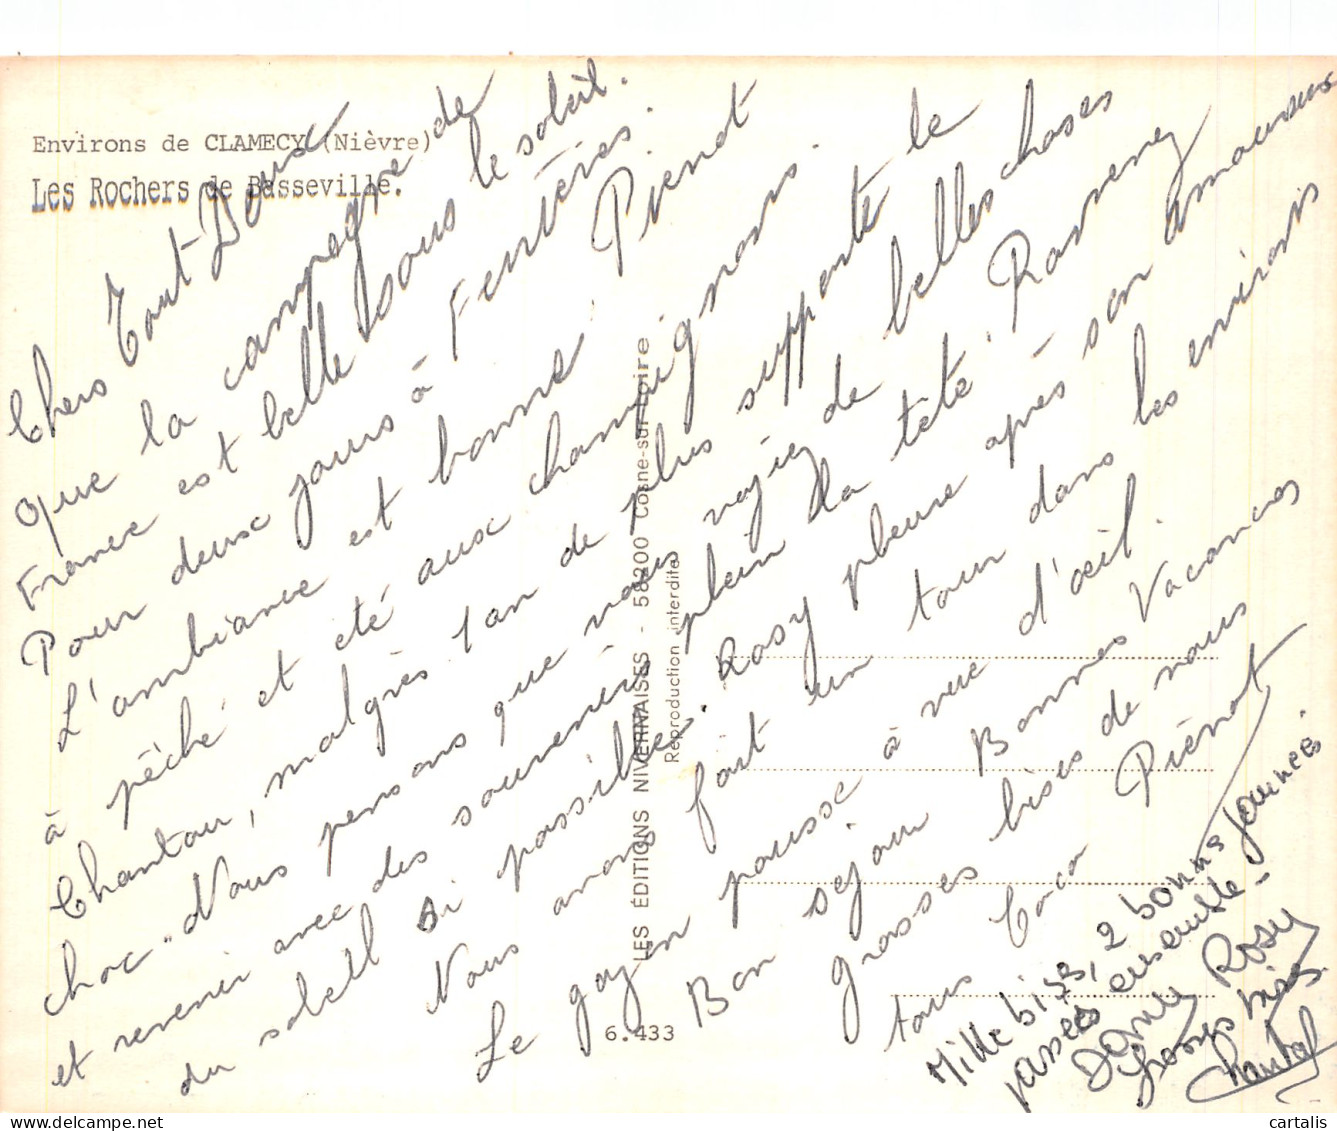 Environs de CLAMECY (Nièvre)
Les Rochers de Basseville.
Chers Tout Doux
que la campagne de
France est belle sous le soleil.
Pour deux jours à Ferrières.
L'ambiance est bonne, Pierrot
à pêché et été aux champignons.
Chantou, malgrès 1 an de plus supporte le
choc. Nous pensons que vous voyiez de belles choses
et revenir avec des souvenirs plein la tête. Ramenez
du soleil si possible. Rosy pleure après son amoureux
Nous avons fait un tour dans les environs
Le gazon pousse à vue d'œil.
Bon séjour Bonnes Vacances
grosses bises de nous
tous Coco Pierrot
Mille bises, 2 bonnes journées
passées ensemble -
Rosy
Grosses bises
Chantal
LES ÉDITIONS NIVERNAISES - 58200 Cosne-sur-Loire
Reproduction interdite
6.433
cartalis
cartalis.com